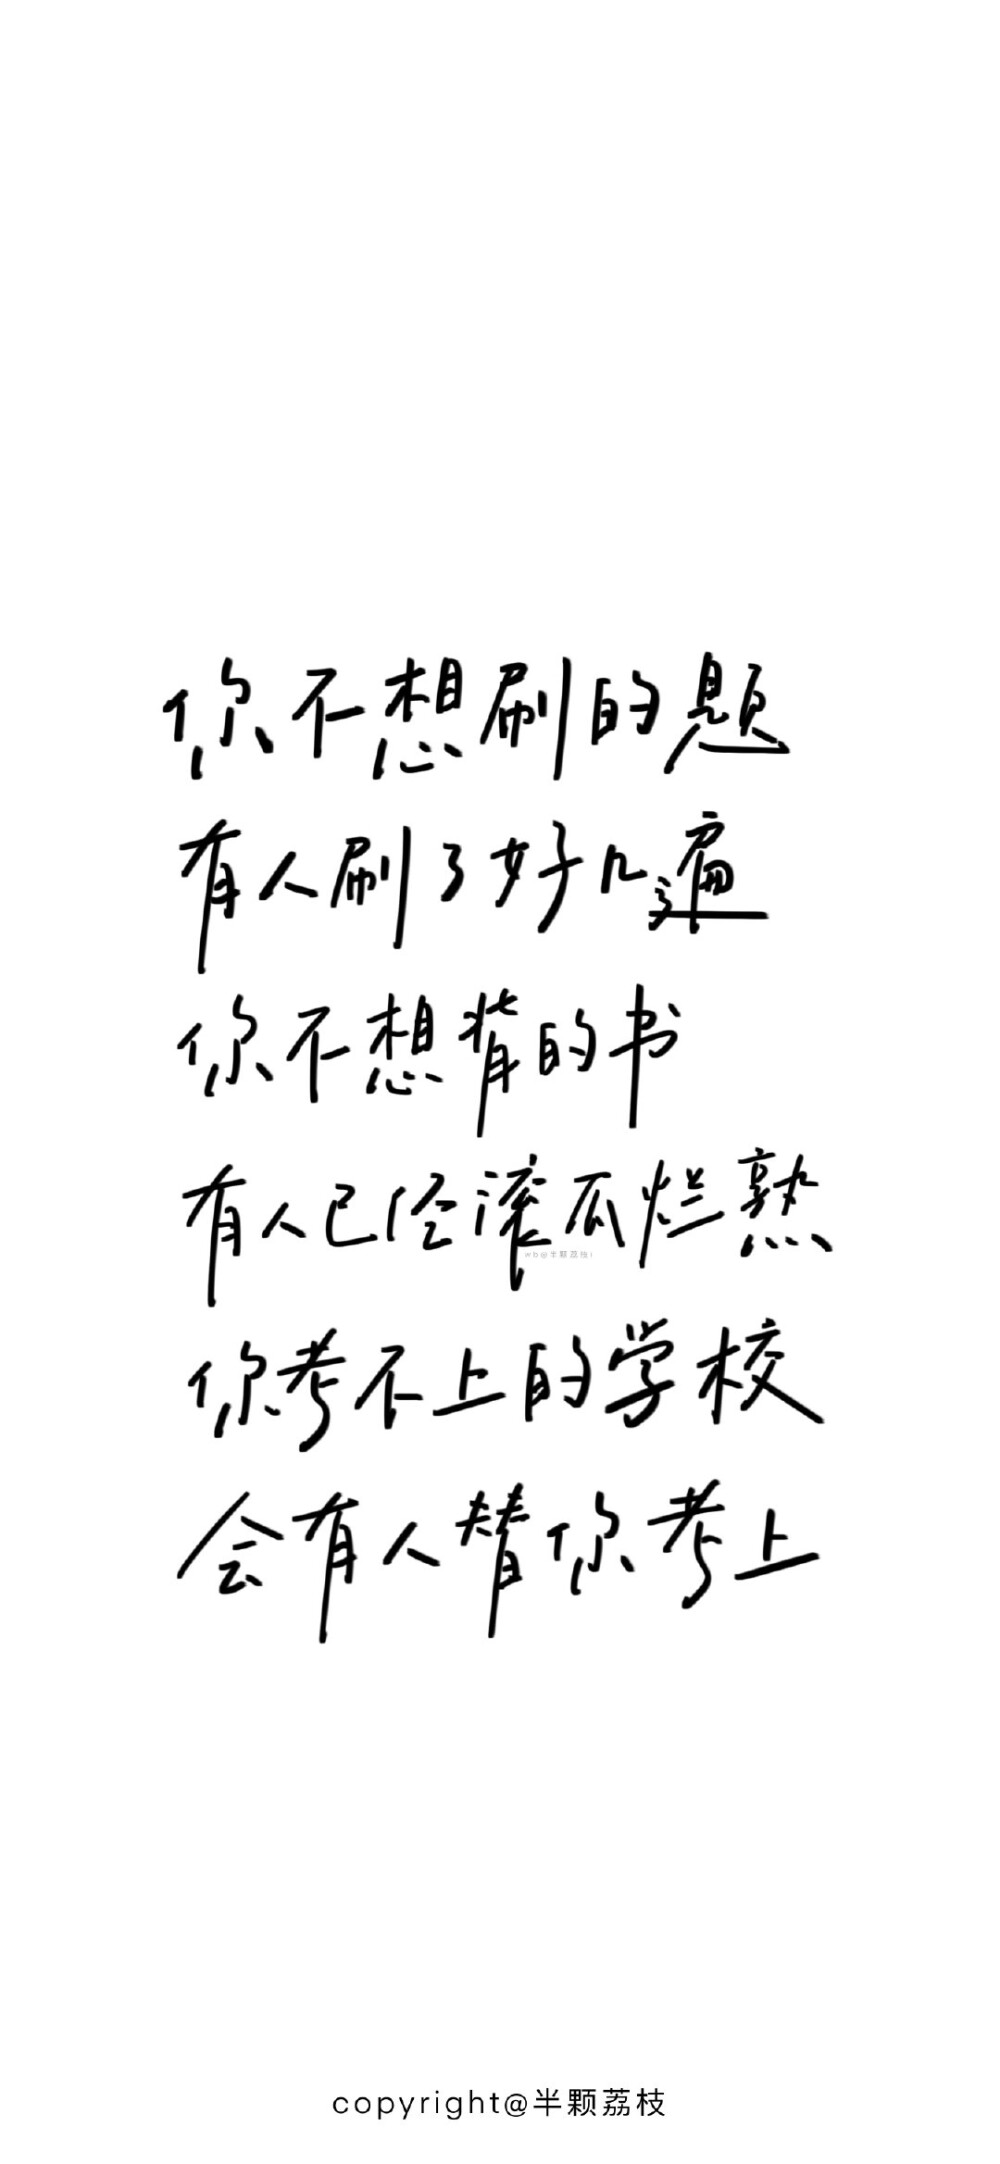 你不想刷的题
有人刷了好几遍
你不想背的书
有人已经滚瓜烂熟
wb@半颗荔枝i
你考不上的学校
会有人替你考上
copyright@半颗荔枝